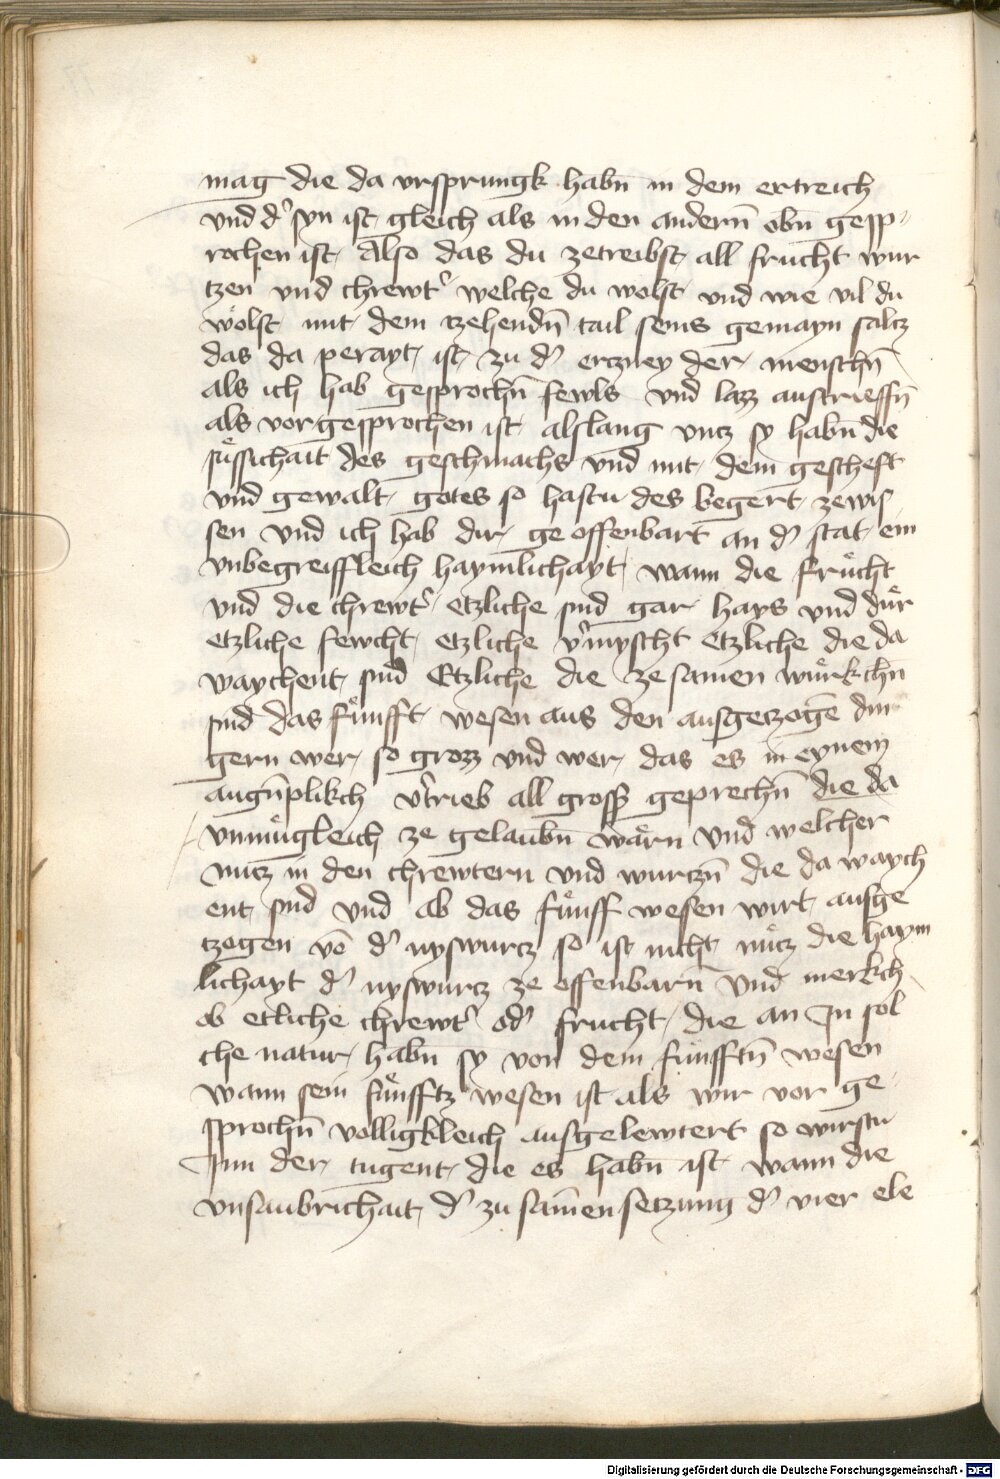 mag die da vrsprungk habn̄ in dem ertreich
vnd d' syn ist gleich als in den andern̄ obn̄ gesp-
rochen ist Also das du zetreibst all frucht wur
tzen vnd chrewt' welche du wolst vnd wie vil du
wölst mit dem tzehendn̄ tail seins gemayn saltz
das da perayt ist zu d' ertzney der menschn̄
als ich hab gesprochn̄ fewls vnd lazz austrieffn̄
als vor gesprochen ist alslang vntz sy habn̄ die
süssichait des geschmachs vnd mit dem gescheft
vnd gewalt gotes so hastu des begert zewis
sen vnd ich hab dir ge offenbart an d' stat ein
vnbegreiffleich haymlichayt wann die frücht
vnd die chrewt' etzliche sind gar hays vnd dür
etzliche fewcht etzliche v'myscht etzliche die da
waychent sind Etzliche die ze samen würkchn
sind das fünfft wesen aus den ausgetzogē din
gern wer so grozz vnd wer das es in eynem
augn̄plikch v'trieb all gross geprechn̄ die da
vnmügleich ze gelaubn̄ wärn vnd welcher
nutz in den chrewtern vnd wurtzn̄ die da waych
ent sind vnd ab das fünff wesen wirt ausge
tzogen vō d' nyswurtz so ist nicht nütz die haym
lichayt d' nyswurtz ze offenbarn̄ vnd merkch
ob etliche chrewt' od' frucht die an In sol
che natur habn̄ sy von dem fünfftn̄ wesen
wann sein fünfftz wesen ist als wir vor ge
sprochn̄ volligkleich ausgelewtert so wirstu
Inn der tugent die es habn̄ ist wann die
vnsaubrichait d' zu sam̄ensetzung d' vier ele
Digitalisierung gefördert durch die Deutsche Forschungsgemeinschaft - DFG